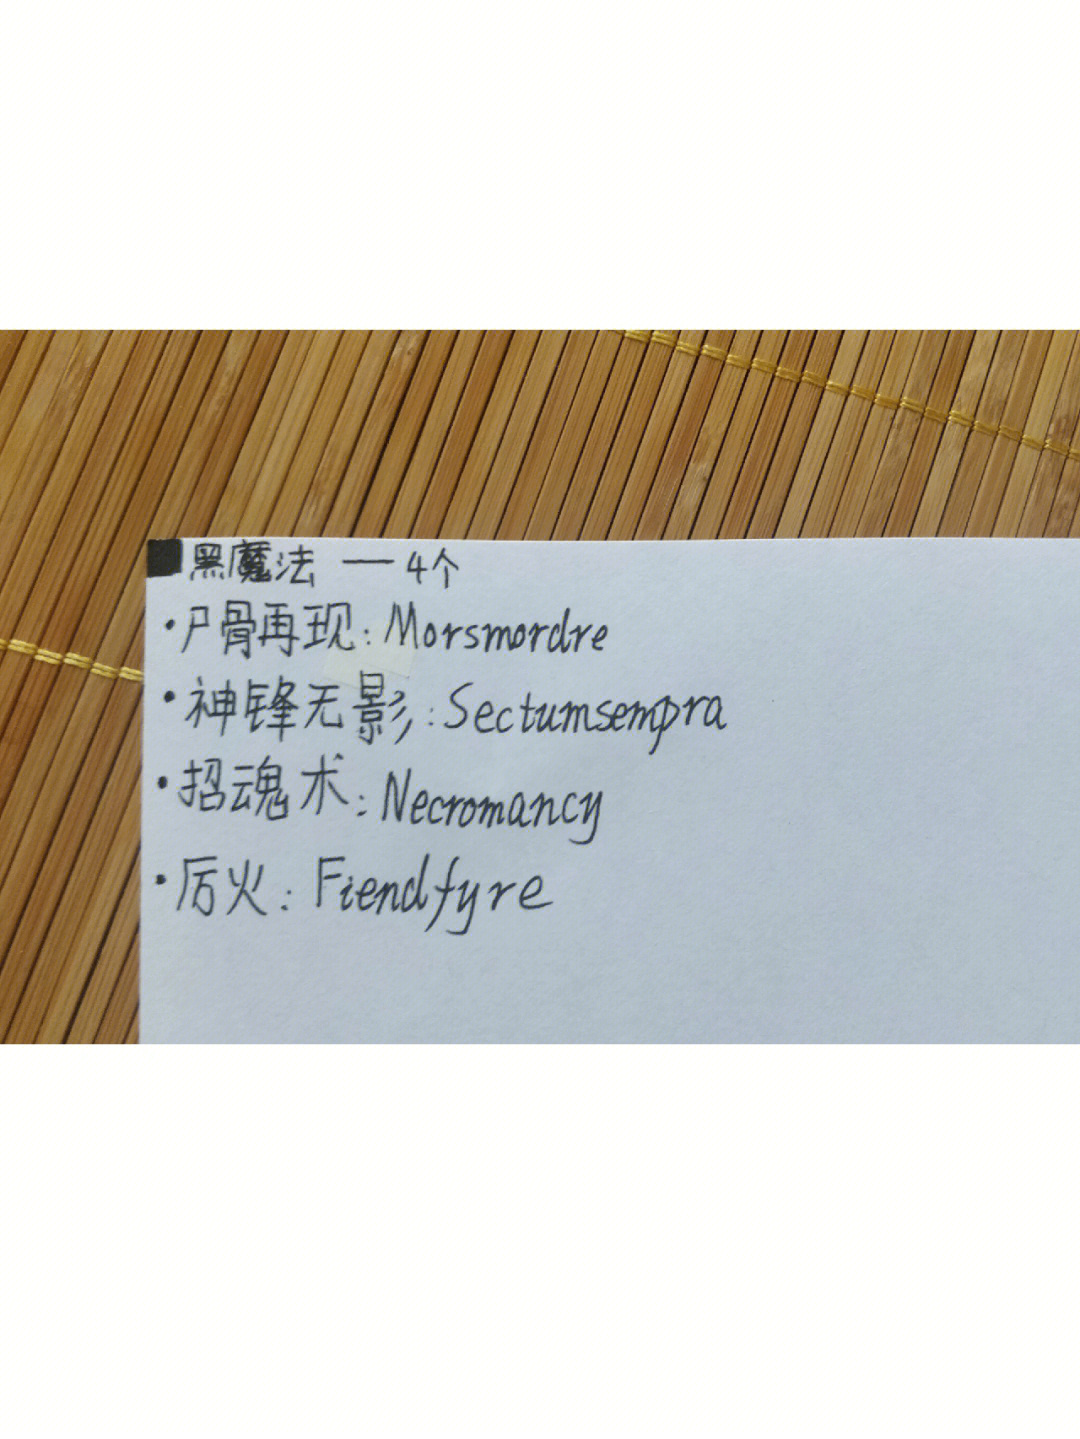 黑魔法 — 4个
·尸骨再现：Morsmordre
·神锋无影：Sectumsempra
·招魂术：Necromancy
·厉火：Fiendfyre